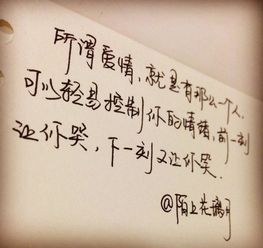 所谓爱情,就是有那么一个人.
可以轻易控制你的情绪,前一刻
让你哭,下一刻又让你笑.
@陌上花璃月